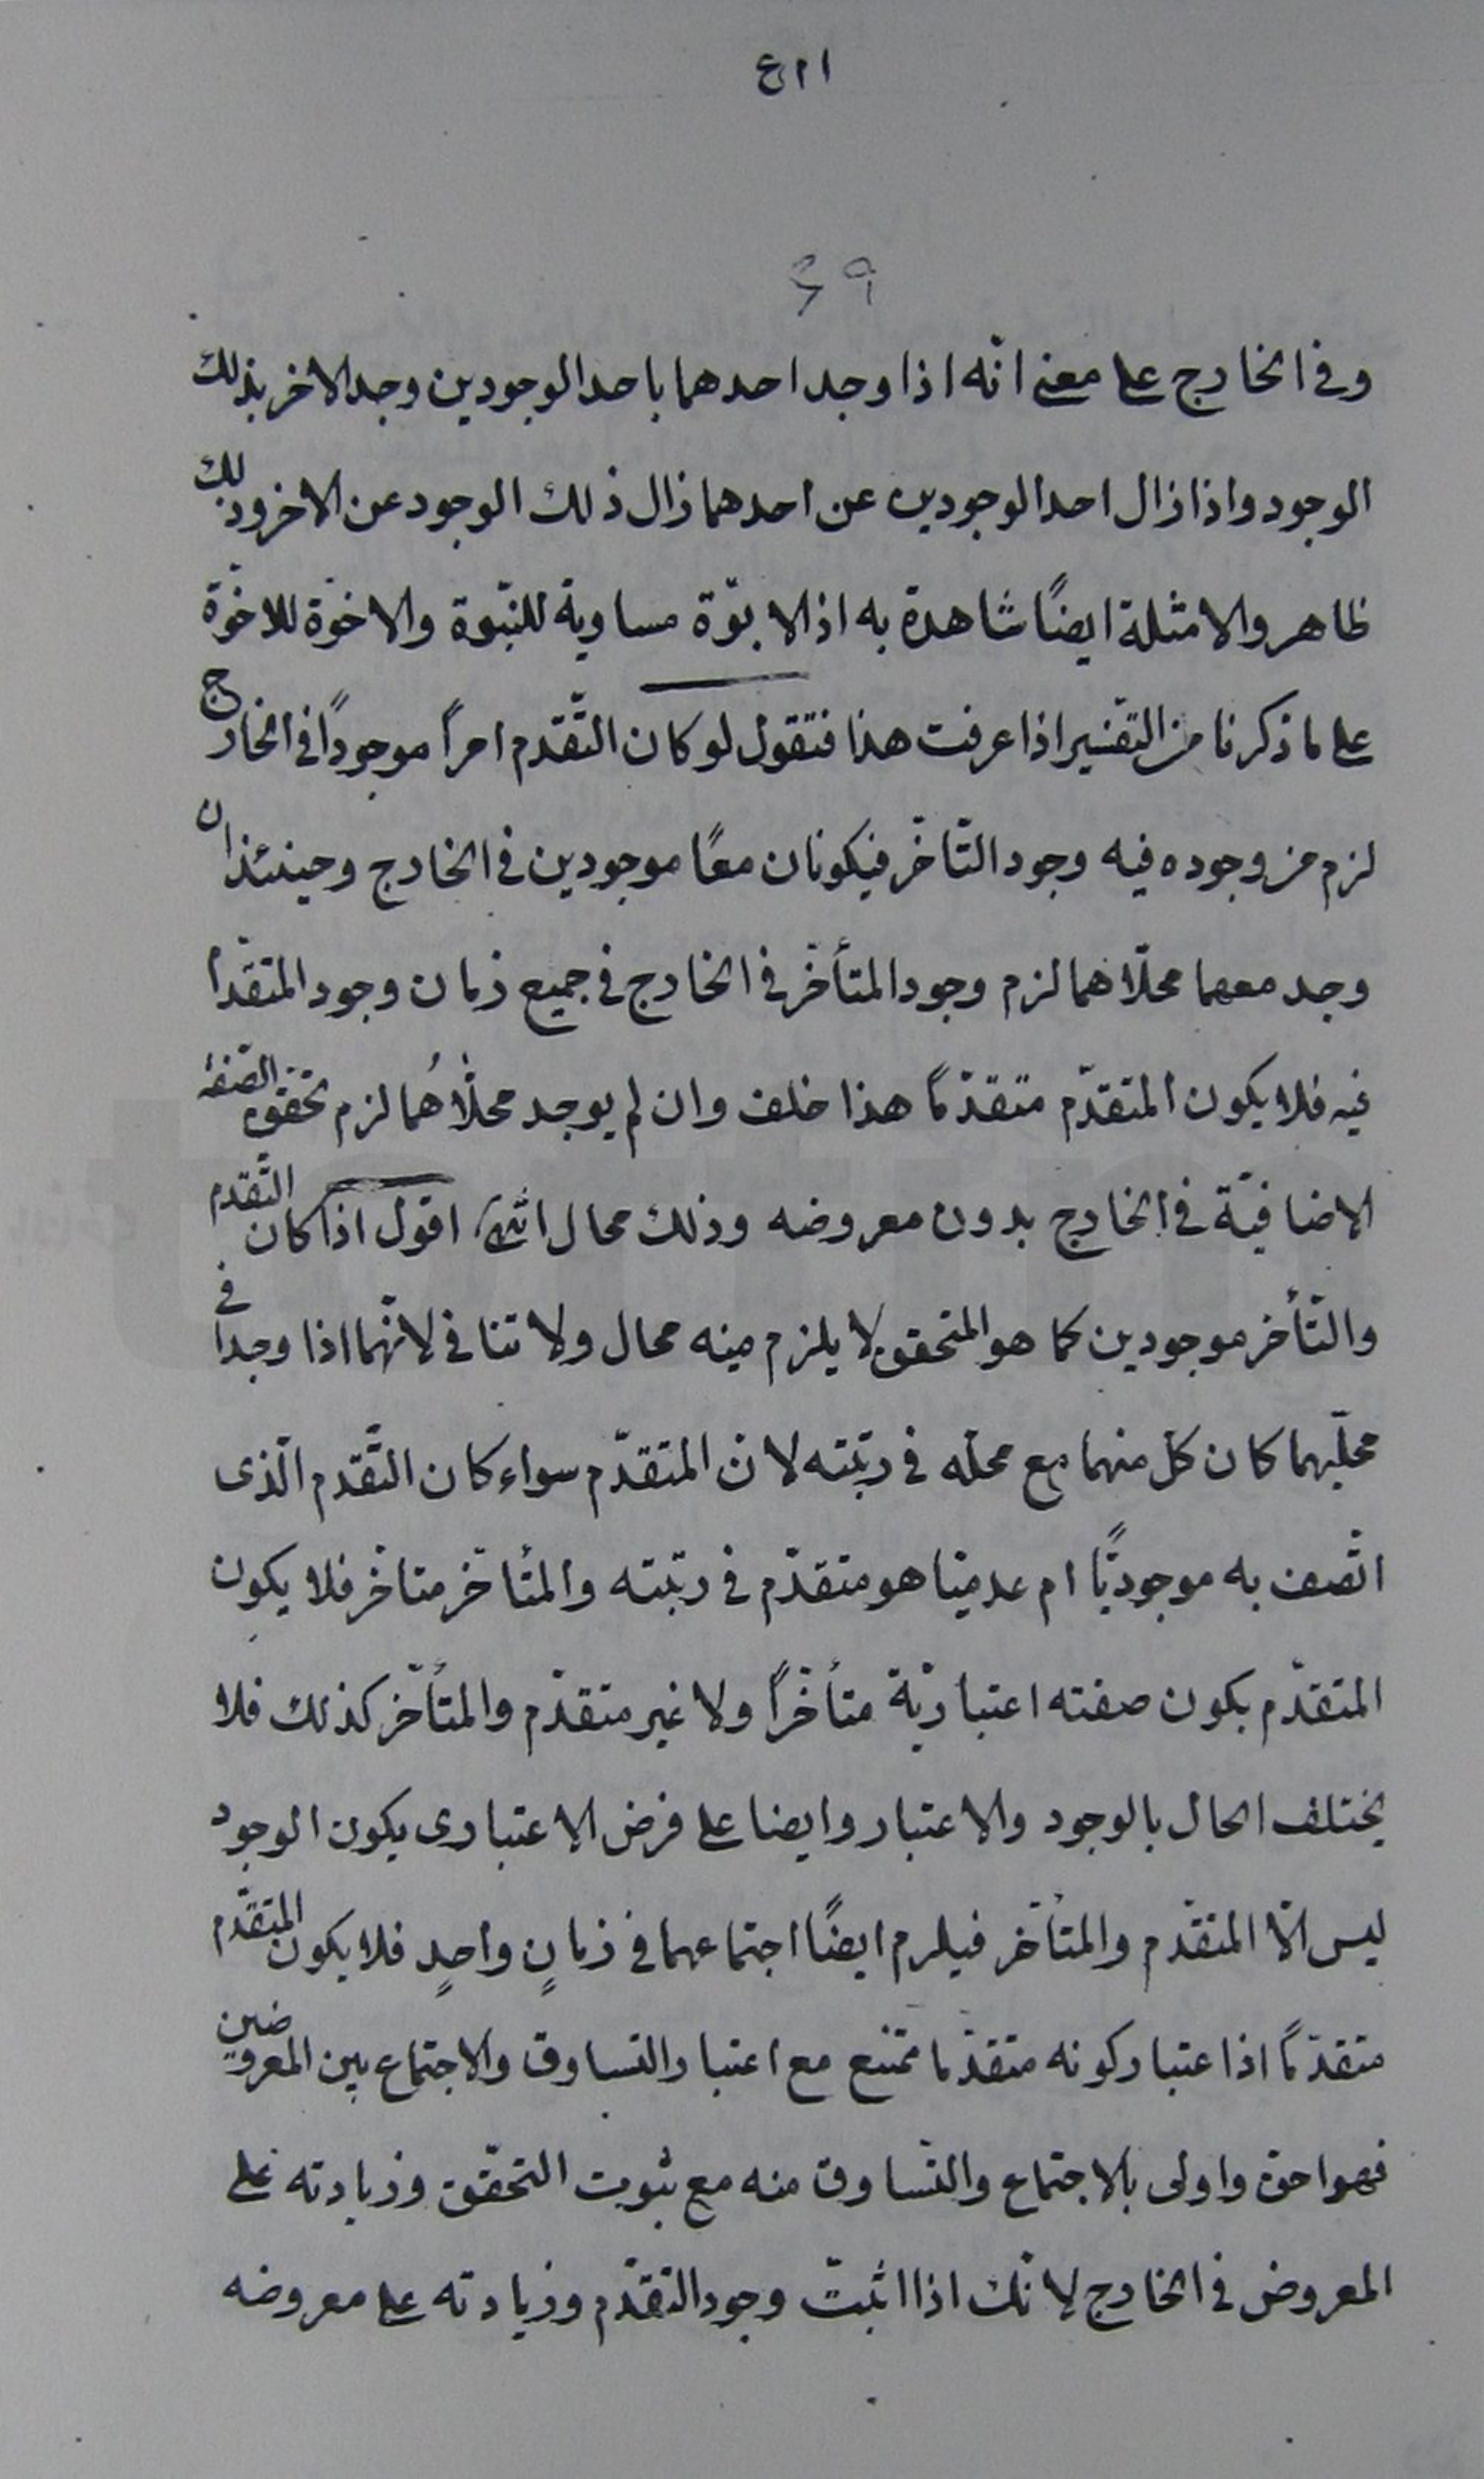 ٤١١
٤٩
وفي الخارج على معنى انّه اذا وجد احدهما باحد الوجودين وجد الاخر بذلك
الوجود واذا زال احد الوجودين عن احدهما زال ذلك الوجود عن الاخر وذلك
ظاهر والامثلة ايضًا شاهدة به اذ الابوّة مساوية للبنّوة والاخوّة للاخوّة
على ما ذكرنا من التفسير اذا عرفت هذا فتقول لو كان التّقدم امراً موجودًا في الخارج
لزم من وجوده فيه وجود التّاخّر فيكونان معًا موجودين في الخارج وحينئذ ان
وجد معهما محلّاهما لزم وجود المتأخّر في الخارج في جميع زمان وجود المتقدّم
فيه فلا يكون المتقدّم متقدّمًا هذا خلف وان لم يوجد محلّاهُما لزم تحقق الصّفة
الاضافيّة في الخارج بدون معروضه وذلك محال انتهى اقول اذا كان التّقدم
والتّأخر موجودين كما هو المتحقق لا يلزم منه محال ولا تنافي لانّهما اذا وجدا في
محلّيهما كان كل منهما مع محلّه في رتبته لانّ المتقدّم سواء كان التّقدم الّذى
اتّصف به موجوديًّا ام عدميّا هو متقدّم في رتبته والمتأخّر متاخّر فلا يكون
المتقدّم بكون صفته اعتباريّة متأخّراً ولا غير متقدّم والمتأخّر كذلك فلا
يختلف الحال بالوجود والاعتبار وايضا على فرض الاعتبارى يكون الوجود
ليس الّا المتقدّم والمتأخّر فيلزم ايضًا اجتماعهما في زمانٍ واحدٍ فلا يكون المتقدّم
متقدّمًا اذا عتبار كونه متقدّما ممتنع مع اعتبار التساوق والاجتماع بين المعروضين
فهو احق واولى بالاجتماع والتّساوق منه مع ثبوت التحقّق وزيادته على
المعروض في الخارج لانّك اذا اثبتّ وجود التقدّم وزيادته على معروضه